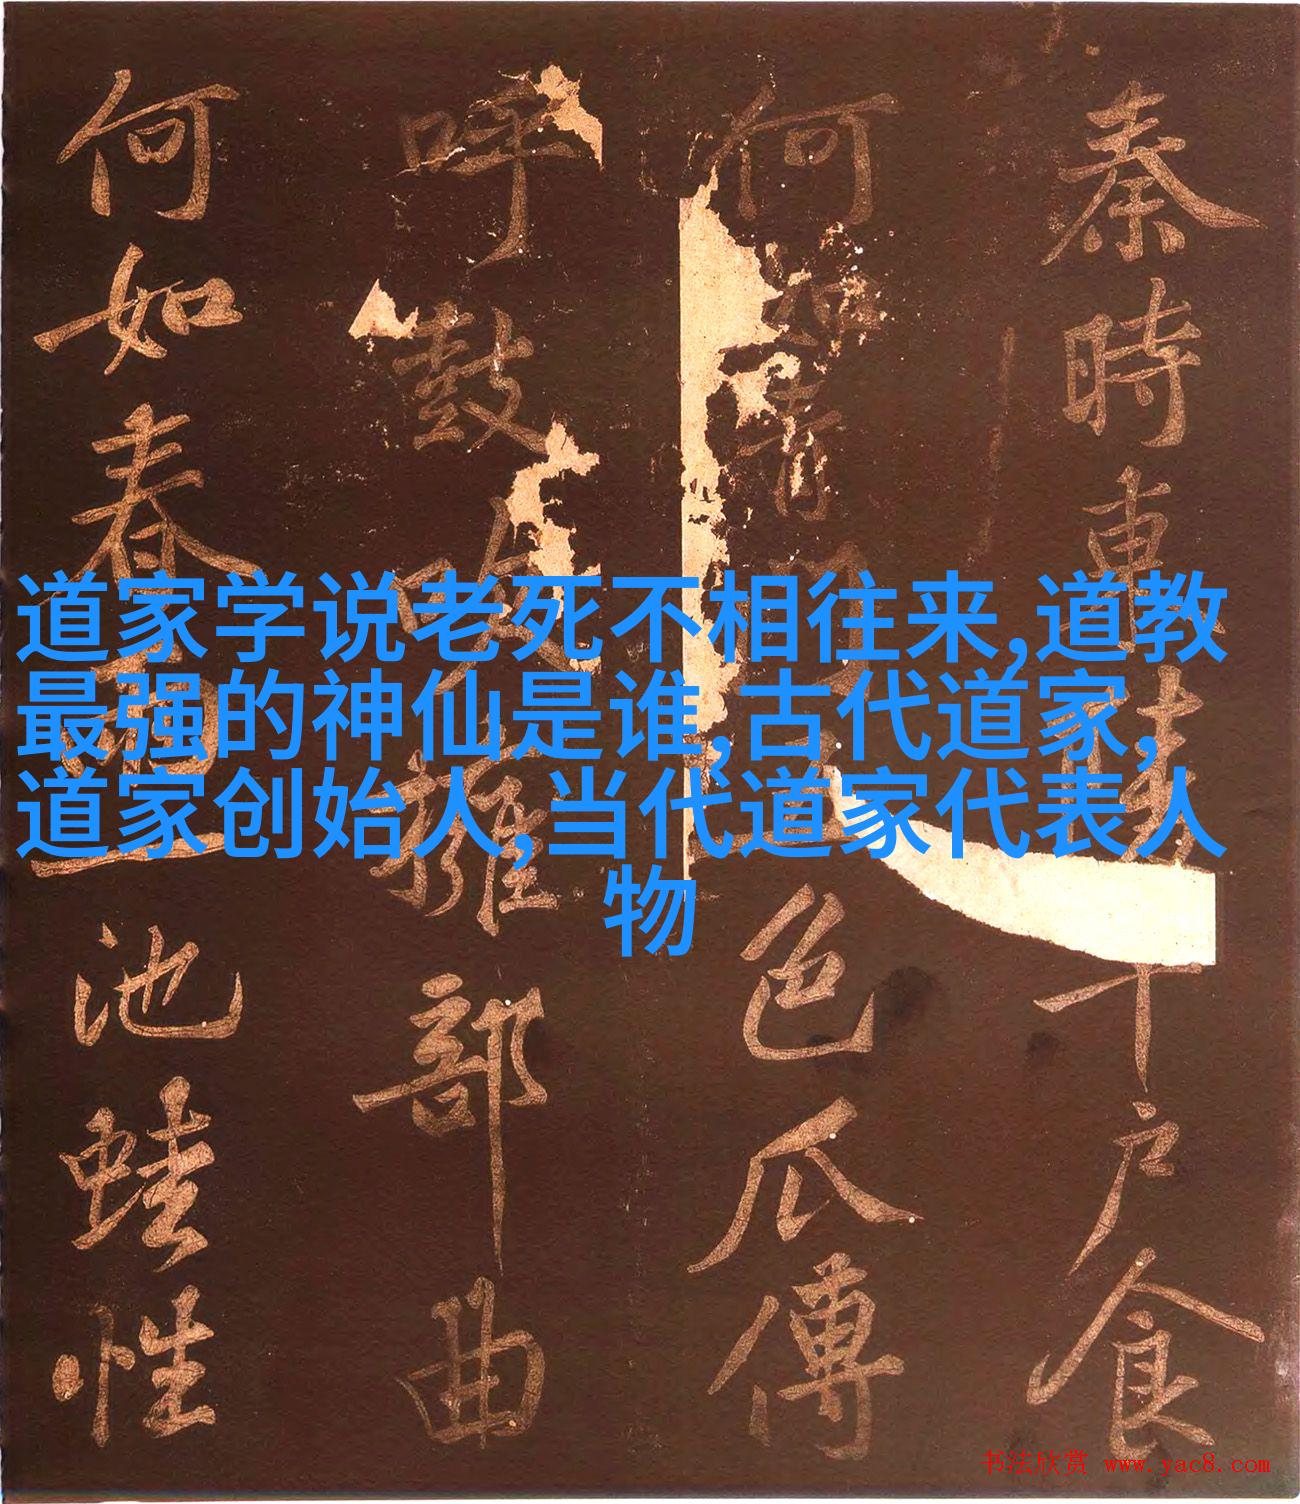 秦時東陵千戶食
何如青門五色瓜傅
呼鼓吹擁部曲
何如春畫一池蛙性
道家学说老死不相往来,道教
最强的神仙是谁,古代道家,
道家创始人,当代道家代表人
物
书法欣赏 www.yac8.com